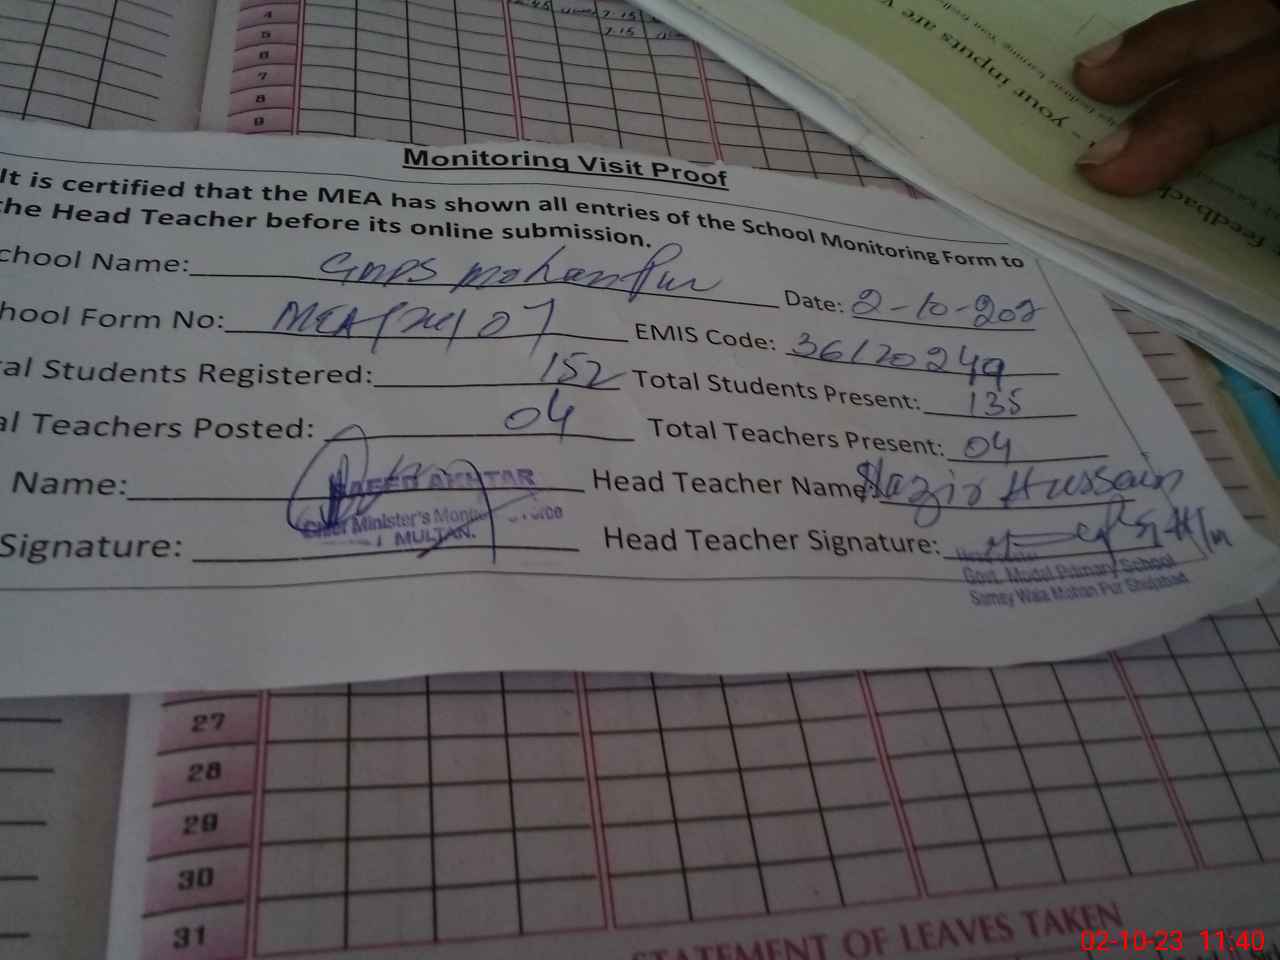 4
5
7.15
6
7
8
9
your inputs are
feedback
Monitoring Visit Proof
It is certified that the MEA has shown all entries of the School Monitoring Form to
the Head Teacher before its online submission.
chool Name: GMPS Mohanpur Date: 2-10-202
hool Form No: MEA 07 EMIS Code: 36120249
al Students Registered: 152 Total Students Present: 135
al Teachers Posted: 04 Total Teachers Present: 04
Name: Head Teacher Name: Nazir Hussain
AKHTAR
Chief Minister's
MULTAN.
Signature: Head Teacher Signature:
Govt. Model Primary School
Wala Mohan Pur Shujabad
27
28
29
30
31
STATEMENT OF LEAVES TAKEN
02-10-23 11:40